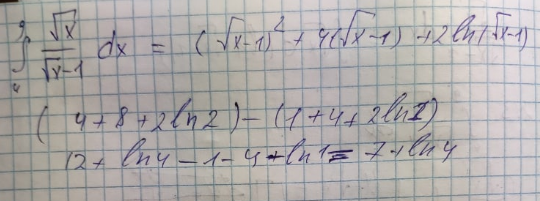 ∫₄⁹ √x/(√x-1) dx = (√x-1)² + 4(√x-1) + 2ln(√x-1)
(4+8+2ln2)-(1+4+2ln1)
12+ln4-1-4+ln1=7+ln4